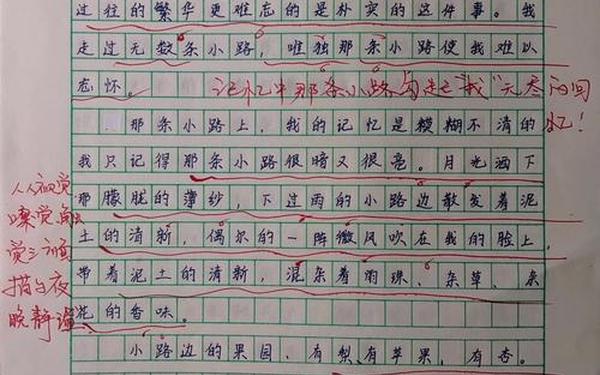 过往的繁华更难忘的是朴实的这件事。我
走过无数条小路，唯独那条小路使我难以
忘怀。
记忆中那条小路勾起"我"无尽的回忆！
那条小路上，我的记忆是模糊不清的
我只记得那条小路很暗又很亮。月光洒下
那朦胧的薄纱，下过雨的小路边散发着泥
土的清新，偶尔的一阵微风吹在我的脸上，
带着泥土的清新，混杂着雨珠、杂草、杂
花的香味。
小路边的果园，有梨、有苹果，有杏。
人从视觉
嗅觉触
觉三方面
描写夜
晚静谧